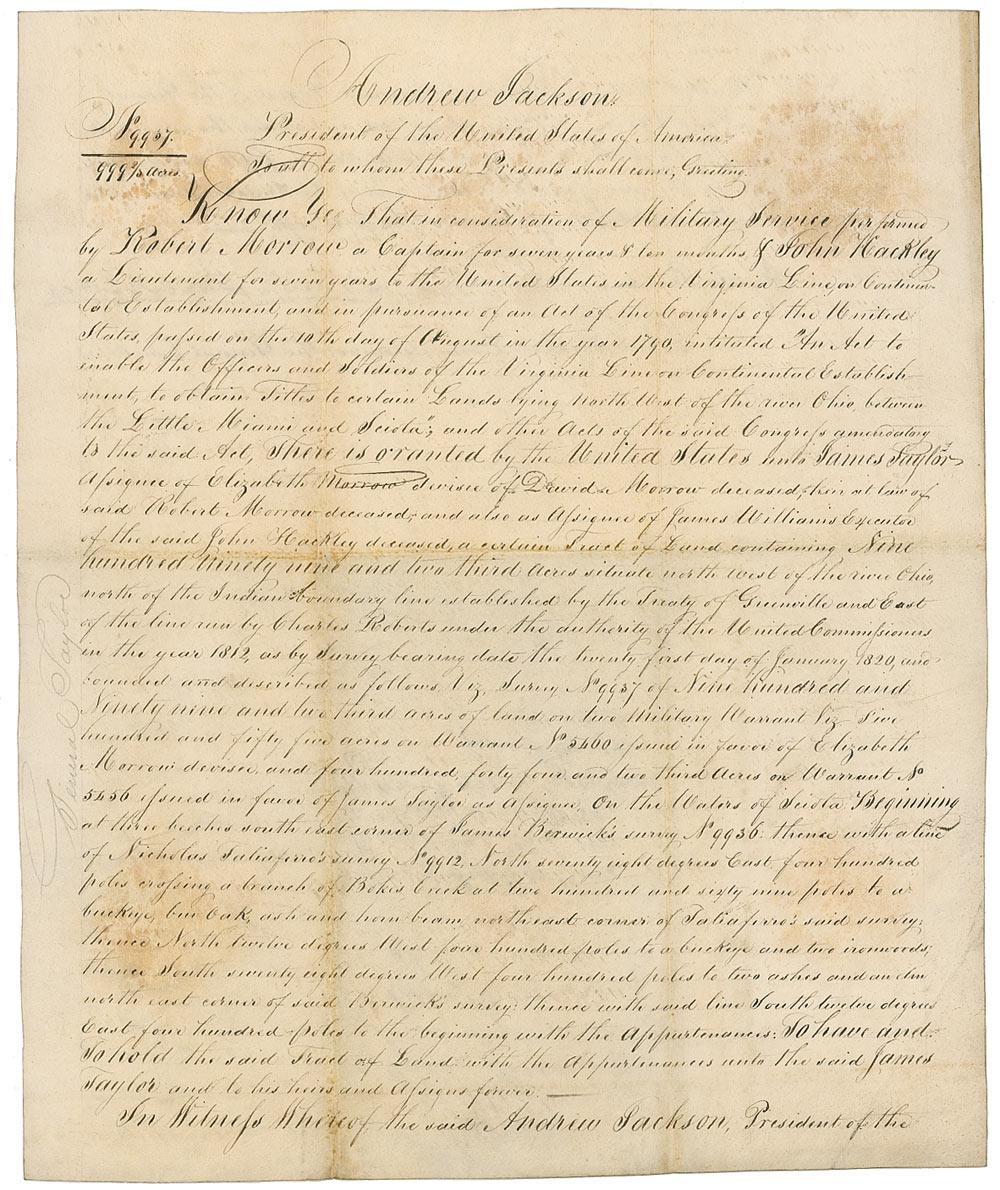 Andrew Jackson,
President of the United States of America,
No 9957.
999 2/3 Acres.
To all to whom these Presents shall come, Greeting.
Know Ye, That in consideration of Military Service performed
by Robert Morrow a Captain for seven years & ten months & John Hackley
a Lieutenant for seven years to the United States in the Virginia Line on Continen-
tal Establishment, and in pursuance of an Act of the Congress of the United
States, passed on the 10th day of August in the year 1790, intituled "An Act to
enable the Officers and Soldiers of the Virginia Line on Continental Establish-
ment, to obtain Titles to certain Lands lying North West of the river Ohio, between
the Little Miami and Sciota"; and other Acts of the said Congress amendatory
to the said Act, There is granted by the United States unto James Taylor
Assignee of Elizabeth Morrow devisee of David Morrow deceased, heir at law of
said Robert Morrow deceased, and also as Assignee of James Williams Executor
of the said John Hackley deceased, a certain Tract of Land containing Nine
hundred Ninety nine and two third Acres situate north west of the river Ohio,
north of the Indian boundary line established by the Treaty of Grenville and East
of the line run by Charles Roberts under the authority of the United Commissioners
in the year 1812, as by Survey bearing date the twenty first day of January 1820, and
bounded and described as follows, Viz, Survey No 9957 of Nine hundred and
Ninety nine and two third acres of land on two Military Warrant Viz Five
hundred and fifty five acres on Warrant No 5460 issued in favor of Elizabeth
Morrow devisee, and four hundred, forty four and two third Acres on Warrant No
5456 issued in favor of James Taylor as Assignee, On the Waters of Sciota Beginning
at three beeches south east corner of James Berwick's survey No 9956. thence with a line
of Nicholas Taliaferro's survey No 9912, North seventy eight degrees East four hundred
poles crossing a branch of Bokes Creek at two hundred and sixty nine poles to a
buckeye, bur Oak, ash and horn beam, northeast corner of Taliaferro's said survey;
thence North twelve degrees West four hundred poles to a buckeye and two ironwoods;
thence South seventy eight degrees West four hundred poles to two ashes and an elm
north east corner of said Berwick's survey: thence with said line South twelve degrees
East four hundred poles to the beginning with the Appurtenances: To have and
To hold the said Tract of Land with the Appurtenances unto the said James
Taylor and to his heirs and Assigns forever.
In Witness Whereof, the said Andrew Jackson, President of the
Taylor